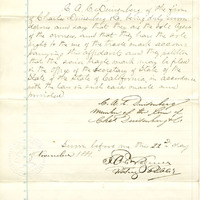 C. A. C. Duisenberg of the firm
of Charles Duisenberg & Co. being duly sworn
deposes and says that they are the sole
owners, and that they have the sole
right to the use of the trade mark accom-
panying this affidavit and they petition
that the said trade mark may be filed
in the office of the Secretary of State of the
State of the State of California, in accordance
with the law in such case made and
provided
C. A. C. Duisenberg
member of the firm of
Chas Duisenberg & Co
Sworn before me this 22nd day
of November 1881
Notary Public